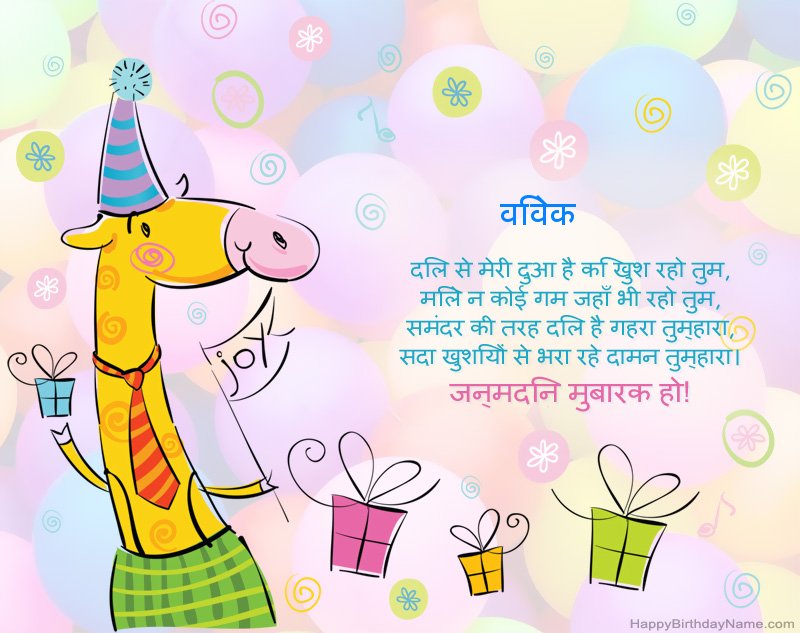 वविेक
दलि से मेरी दुआ है क िखुश रहो तुम,
मलिे न कोई गम जहाँ भी रहो तुम,
समंदर की तरह दलि है गहरा तुम्हारा,
सदा खुशयिों से भरा रहे दामन तुम्हारा।
जन्मदनि मुबारक हो!
joy
HappyBirthdayName.com